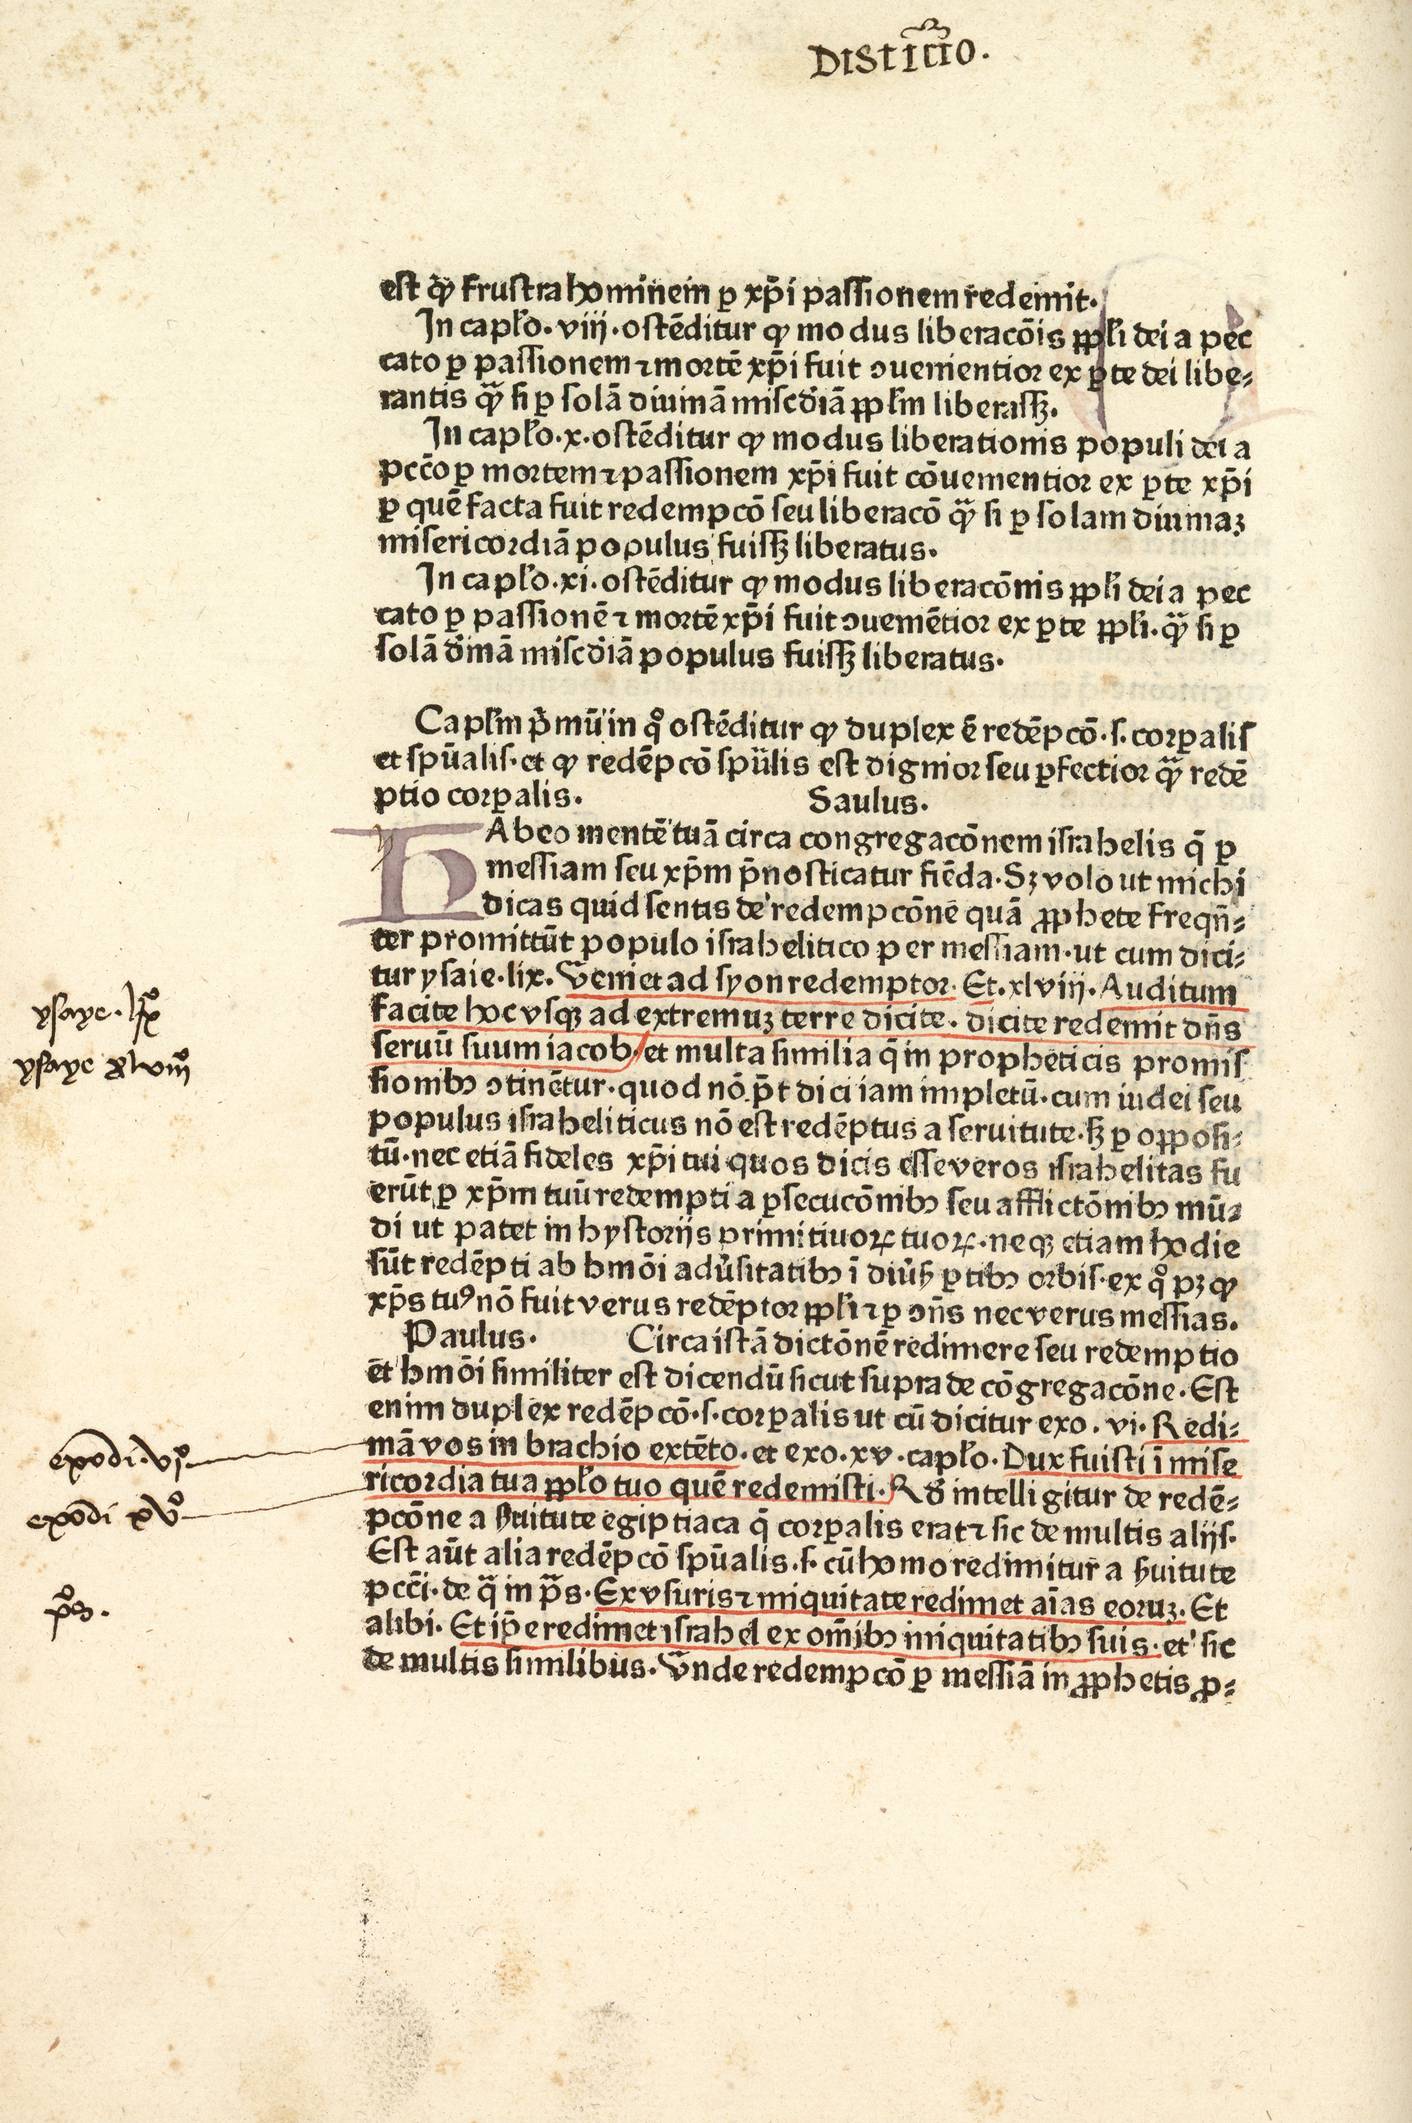 Distĩctio.
est qͥ frustra hominem ꝑ xp̄i passionem redemit.
In capl̓o. viij. ostēditur ꝙ modus liberacōis ppl̓i dei a pec
cato ꝑ passionem ⁊ mortē xp̄i fuit ↄuenientior ex ꝑte dei libe⸗
rantis qͣꝫ si ꝑ solā diuinā misc̓diā ppl̓m liberassꝫ.
In capl̓o. x. ostēditur ꝙ modus liberationis populi dei a
pcc̄o ꝑ mortem ⁊ passionem xp̄i fuit cōuenientior ex ꝑte xp̄i
ꝑ quē facta fuit redempcō seu liberacō qͣꝫ si ꝑ solam diuinaꝫ
misericordiā populus fuissꝫ liberatus.
In capl̓o. xi. ostēditur ꝙ modus liberacōnis ppl̓i dei a pec
cato ꝑ passionē ⁊ mortē xp̄i fuit ↄueniētior ex ꝑte ppl̓i. qͣꝫ si ꝑ
solā d̓inā misc̓diā populus fuissꝫ liberatus.
Capl̓m p̓mū in qͦ ostēditur ꝙ duplex ē redēpcō. s. corꝑalis
et spūalis. et ꝙ redēpcō spūlis est dignior seu ꝑfectior qͣꝫ redē
ptio corꝑalis. Saulus.
HAbeo mentē tuā circa congregacōnem israhelis q̄ ꝑ
messiam seu xp̄m p̄nosticatur fiēda. Sꝫ volo ut michi
dicas quid sentis de redempcōne quā ꝓphete freqn̄⸗
ter promittūt populo israhelitico per messiam. ut cum dici⸗
tur ysaie. lix. Veniet ad syon redemptor. Et. xlviij. Auditum
facite hoc vsqꝫ ad extremuꝫ terre dicite. dicite redemit dn̄s
seruū suum iacob / et multa similia q̄ in propheticis promis
sionibꝰ ↄtinētur. quod nō p̄t dici iam impletū. cum iudei seu
populus israheliticus nō est redēptus a seruitute. sꝫ ꝑ opposi⸗
tū. nec etiā fideles xp̄i tui quos dicis esse veros israhelitas fu
erūt ꝑ xp̄m tuū redempti a ꝑsecucōnibꝰ seu afflictōnibꝰ mū⸗
di ut patet in hystorijs primitiuoꝝ tuoꝝ. neqꝫ etiam hodie
sūt redēpti ab hmōi adūsitatibꝰ ī diūs ꝑtibꝰ orbis. ex qͦ pꝫ ꝙ
xp̄s tuꝰ nō fuit verus redēptor ppl̓i ⁊ ꝑ ↄn̄s nec verus messias.
Paulus. Circa istā dictōnē redimere seu redemptio
ēt hmōi similiter est dicendū sicut supra de cōgregacōne. Est
enim duplex redēpcō. s. corꝑalis ut cū dicitur exo. vi. Redi⸗
mā vos in brachio extēto. et exo. xv. capl̓o. Dux fuisti ī mise
ricordia tua ppl̓o tuo quē redemisti. Qd̓ intelligitur de redē⸗
pcōne a s̓uitute egiptiaca q̄ corꝑalis erat ⁊ sic de multis alijs.
Est aūt alia redēpcō spūalis. s. cū homo redimitur a s̓uitute
pcc̄i. de qͣ in pͣs. Ex vsuris ⁊ iniquitate redimet aīas eoruꝫ. Et
alibi. Et ip̄e redimet israhel ex om̄ibꝰ iniquitatibꝰ suis. et sic
de multis similibus. Vnde redempcō ꝑ messiā in ꝓphetis ꝓ⸗
ysaye. lixº
ysaye xlviijº
exodi. viº.
exodi xvº
pͦs.